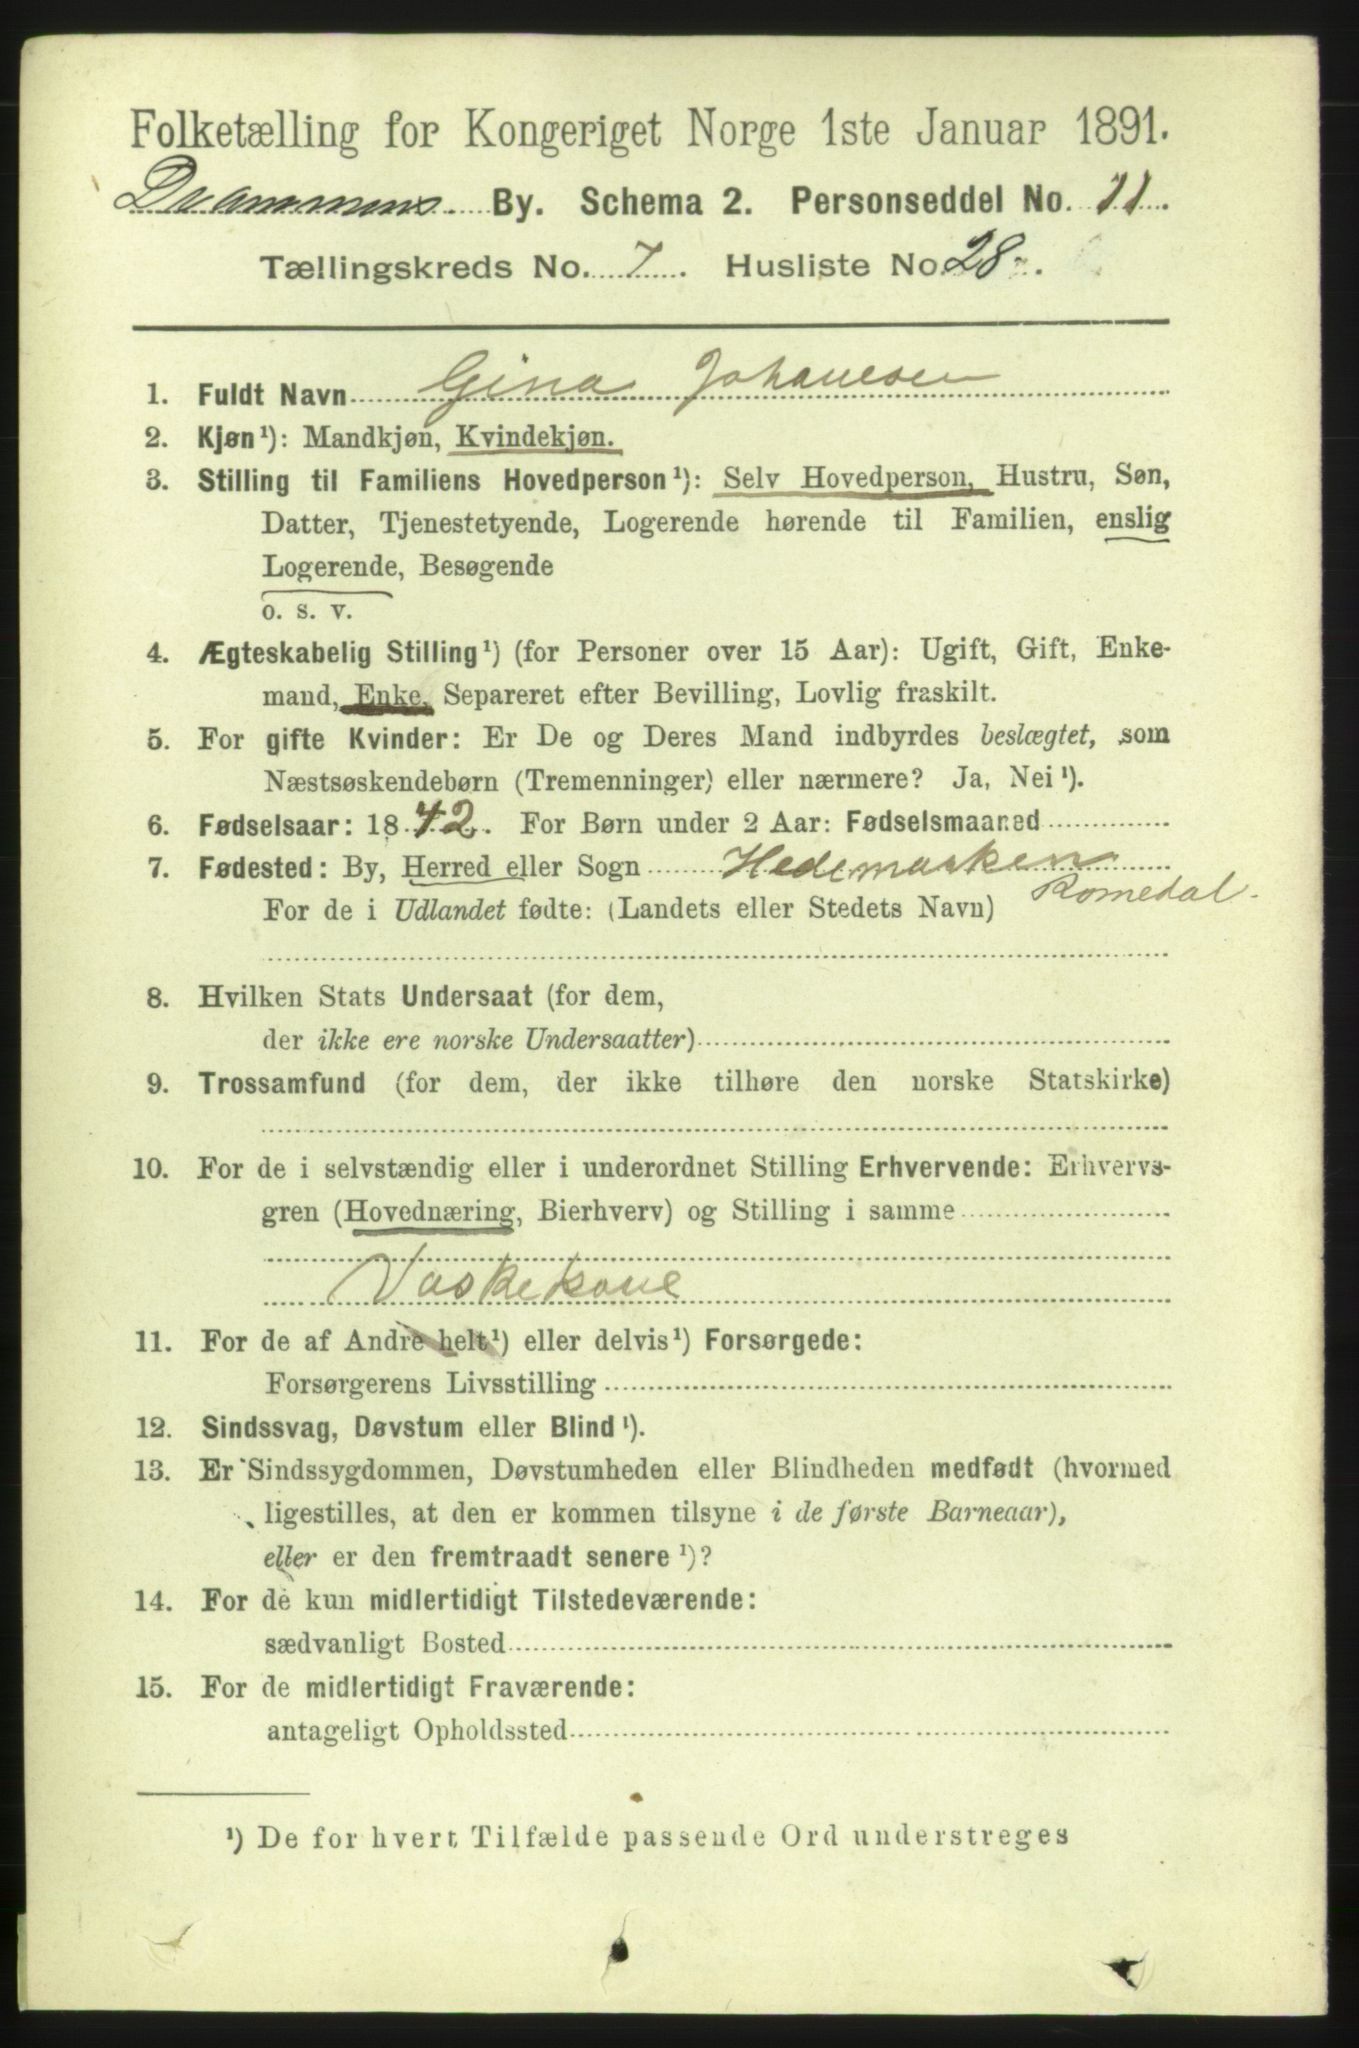 Folketælling for Kongeriget Norge 1ste Januar 1891.
Drammens By. Schema 2. Personseddel No. 11.
Tællingskreds No. 7. Husliste No. 28.
1. Fuldt Navn Gina Johanesen
2. Kjøn¹): Mandkjøn, Kvindekjøn.
3. Stilling til Familiens Hovedperson¹): Selv Hovedperson, Hustru, Søn,
Datter, Tjenestetyende, Logerende hørende til Familien, enslig
Logerende, Besøgende
o. s. v.
4. Ægteskabelig Stilling¹) (for Personer over 15 Aar): Ugift, Gift, Enke-
mand, Enke, Separeret efter Bevilling, Lovlig fraskilt.
5. For gifte Kvinder: Er De og Deres Mand indbyrdes beslægtet, som
Næstsøskendebørn (Tremenninger) eller nærmere? Ja, Nei¹).
6. Fødselsaar: 1842. For Børn under 2 Aar: Fødselsmaaned
7. Fødested: By, Herred eller Sogn Hedemarken
Romedal.
For de i Udlandet fødte: (Landets eller Stedets Navn)
8. Hvilken Stats Undersaat (for dem,
der ikke ere norske Undersaatter)
9. Trossamfund (for dem, der ikke tilhøre den norske Statskirke)
10. For de i selvstændig eller i underordnet Stilling Erhvervende: Erhvervs-
gren (Hovednæring, Bierhverv) og Stilling i samme
Vaskekone
11. For de af Andre helt¹) eller delvis¹) Forsørgede:
Forsørgerens Livsstilling
12. Sindssvag, Døvstum eller Blind¹).
13. Er Sindssygdommen, Døvstumheden eller Blindheden medfødt (hvormed
ligestilles, at den er kommen tilsyne i de første Barneaar),
eller er den fremtraadt senere¹)?
14. For de kun midlertidigt Tilstedeværende:
sædvanligt Bosted
15. For de midlertidigt Fraværende:
antageligt Opholdssted
¹) De for hvert Tilfælde passende Ord understreges